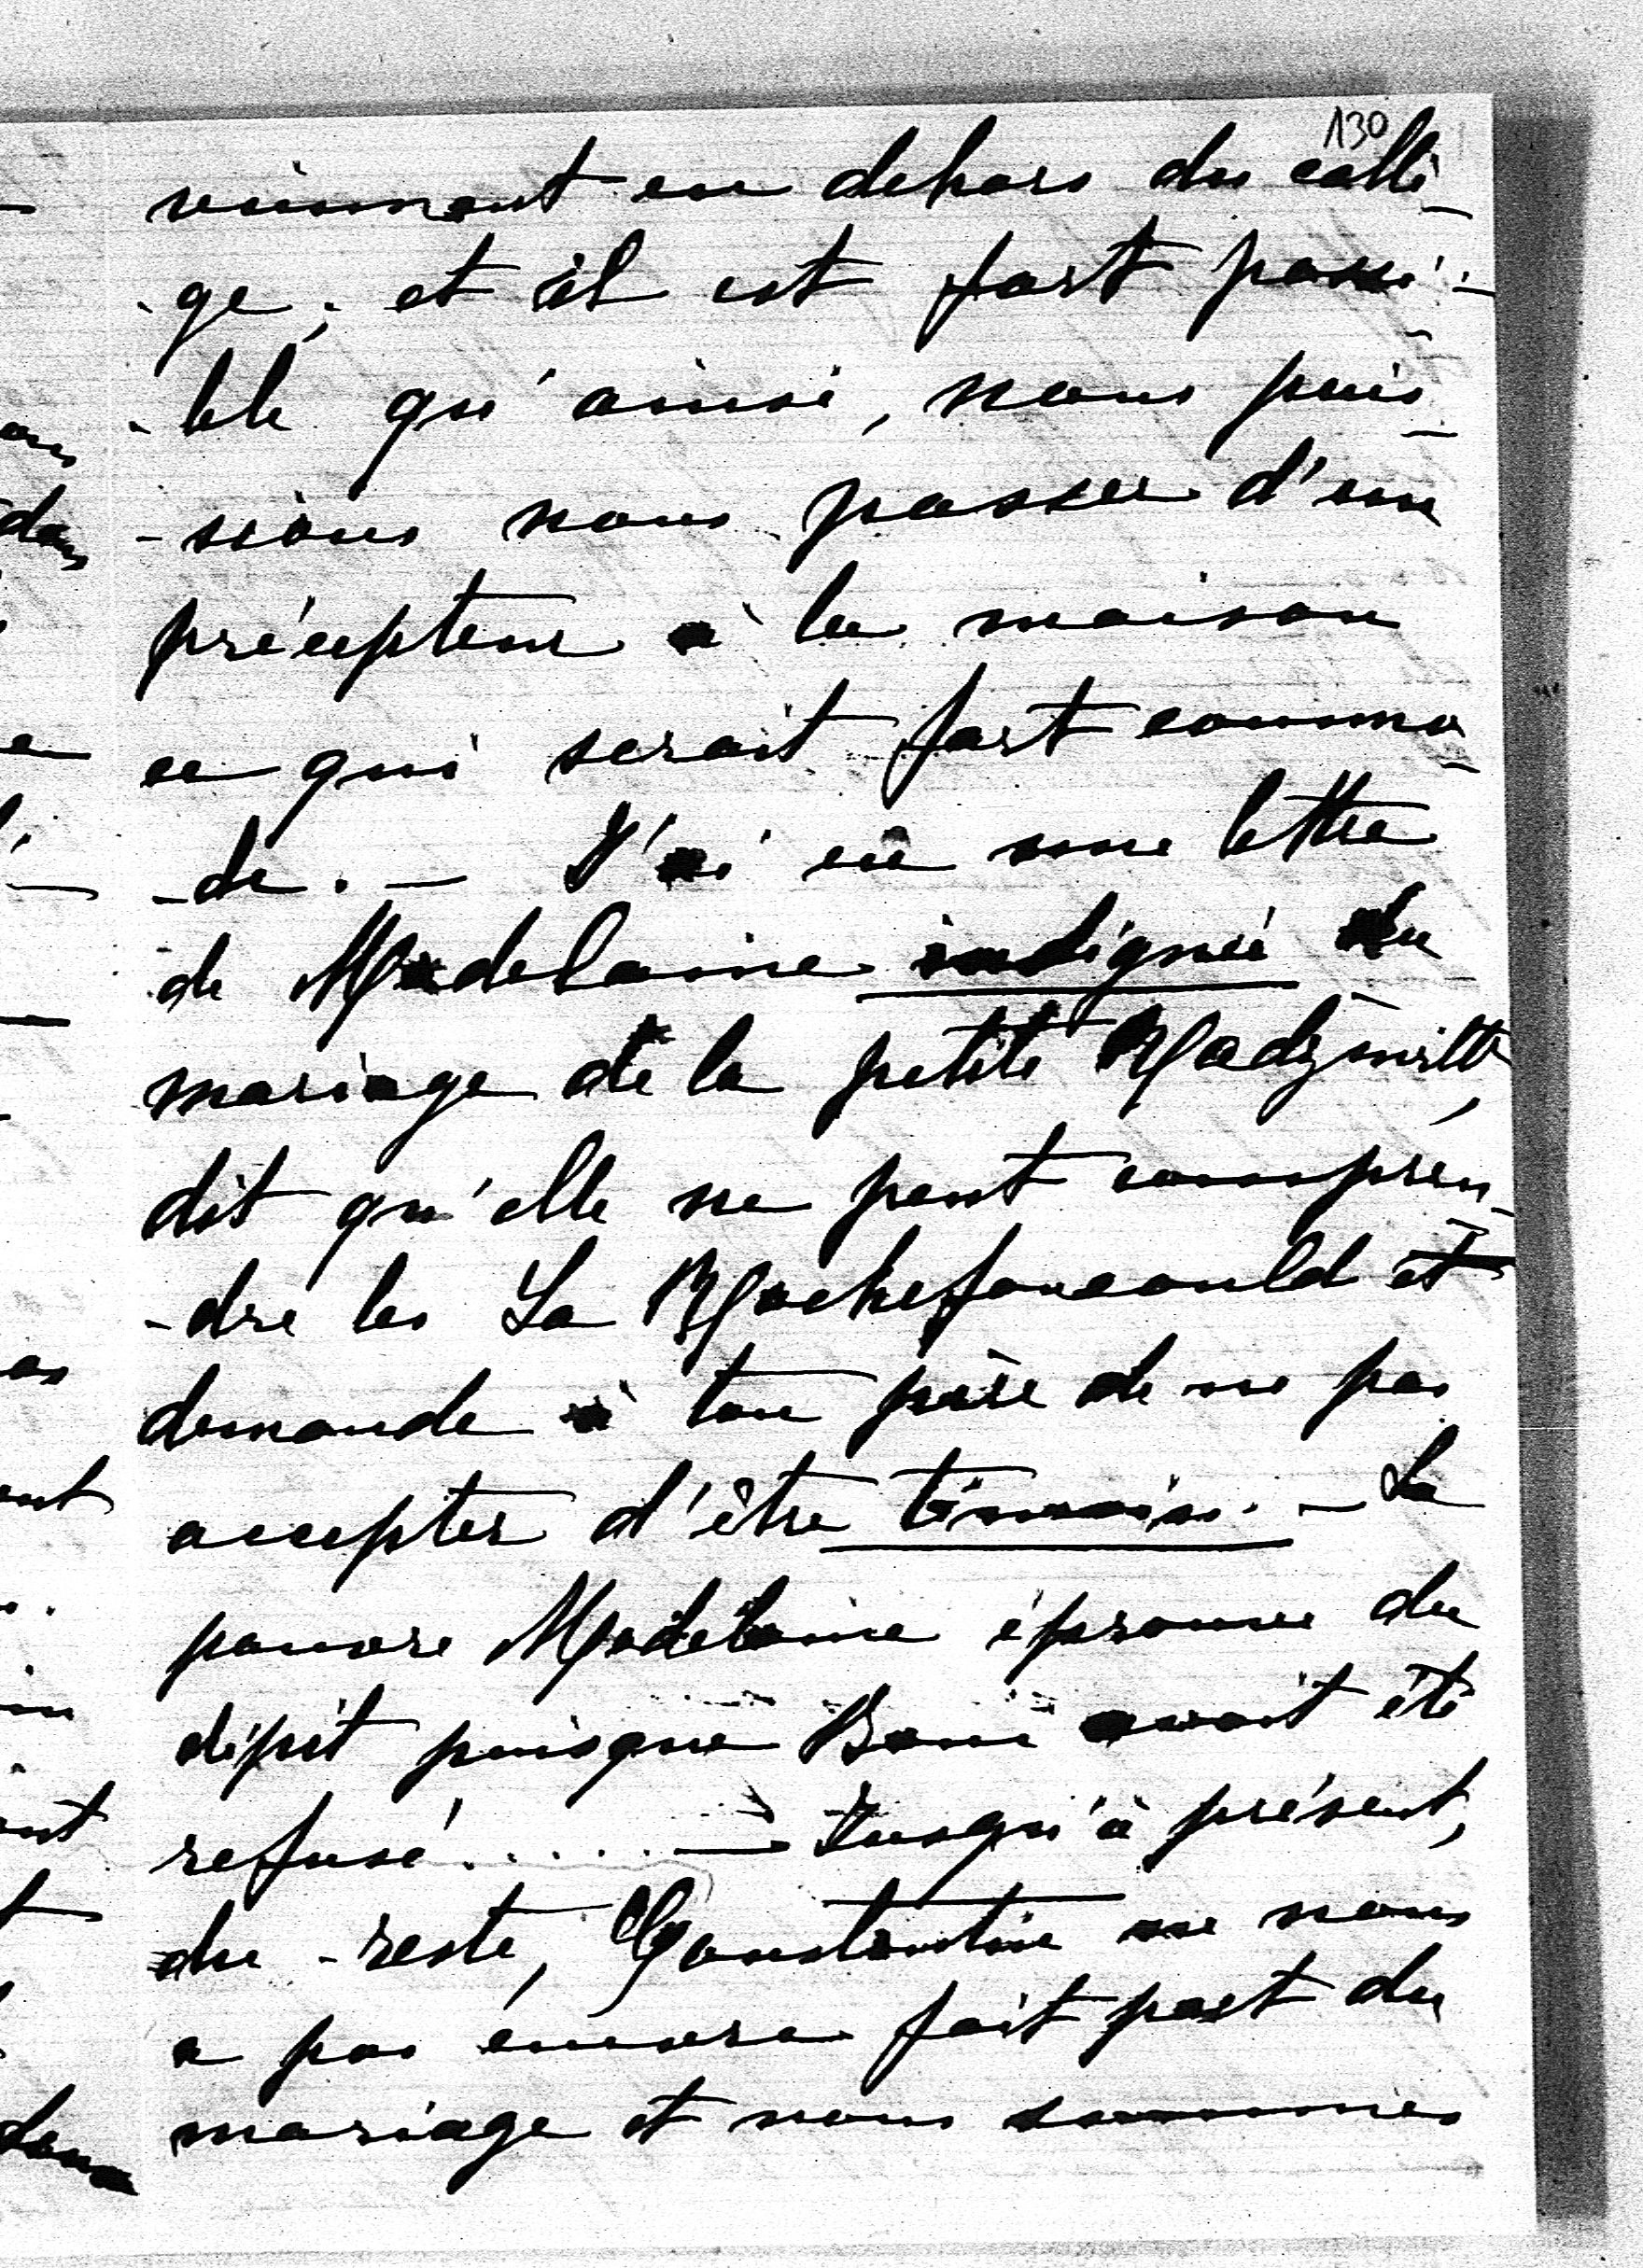 130
viennent en dehors du collè-
-ge, et il est fort possi-
-ble qu'ainsi, nous puis-
-sions nous passer d'un
précepteur à la maison
ce qui serait fort commo-
-de. — J'ai eu une lettre
de Madelaine indignée du
mariage de la petite
dit qu'elle ne peut compren-
-dre les La Rochefoucauld et
demande à ton père de ne pas
accepter d'être témoin. — La
pauvre Madelaine éprouve du
dépit puisque Boni avait été
refusé ...... — Jusqu'à présent,
du reste, Constantin ne nous
a pas encore fait part du
mariage et nous sommes